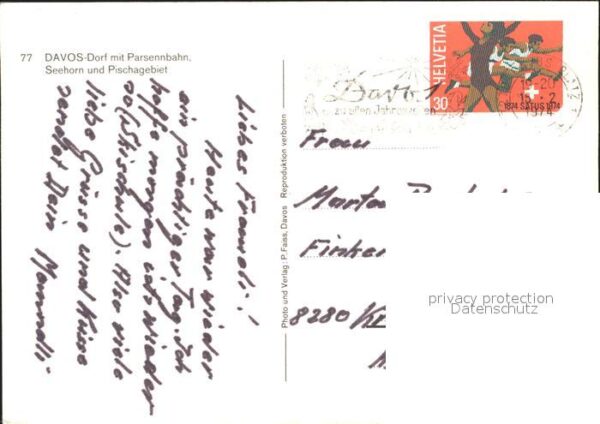 77 DAVOS-Dorf mit Parsennbahn,
Seehorn und Pischagebiet
Liebes Fraueli!
Heute war wieder
ein prächtiger Tag. Ich
hoffe morgen ist's wieder
so (Skischule). Also viele
liebe Grüsse und Küsse
sendet Dein Mannndli
Photo und Verlag: P. Faiss, Davos Reproduktion verboten
HELVETIA
30
1874 SATUS 1974
Davos
zu allen Jahreszeiten
Frau
Marta
Finken
8280
privacy protection
Datenschutz